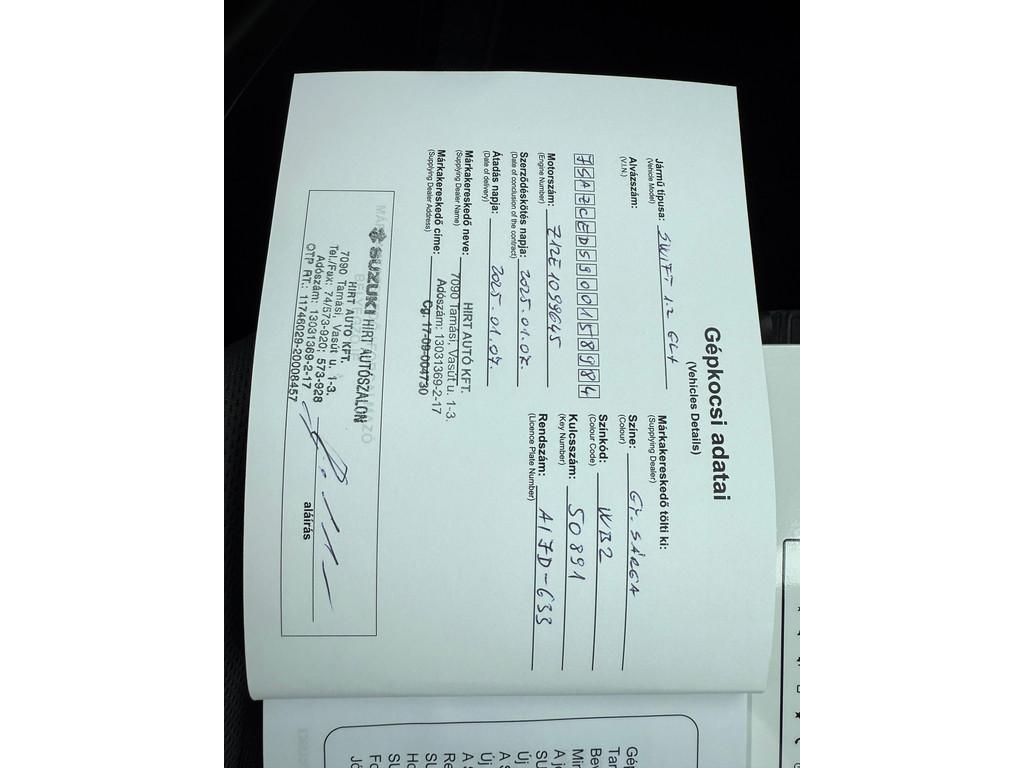 Gépkocsi adatai
(Vehicles Details)
Jármű típusa: SWIFT 1.2 GL+
(Vehicle Model)
Alvázszám:
(V.I.N.)
JSAZCED5900158984
Motorszám: Z12E1099645
(Engine Number)
Szerződéskötés napja: 2025.01.07.
(Date of conclusion of the contract)
Átadás napja: 2025.01.07.
(Date of delivery)
Márkakereskedő neve: HIRT AUTÓ KFT.
(Supplying Dealer Name)
7090 Tamási, Vasút u. 1-3.
Márkakereskedő címe: Adószám: 13031369-2-17
(Supplying Dealer Address)
Cg. 17-09-004730
Márkakereskedő tölti ki:
(Supplying Dealer)
Színe: GY. SÁRGA
(Colour)
Színkód: WB2
(Colour Code)
Kulcsszám: 50891
(Key Number)
Rendszám: AI7D-633
(Licence Plate Number)
SUZUKI HIRT AUTÓSZALON
HIRT AUTÓ KFT.
7090 Tamási, Vasút u. 1-3.
Tel./Fax: 74/573-920; 573-928
Adószám: 13031369-2-17
OTP RT.: 11746029-20008457
aláírás